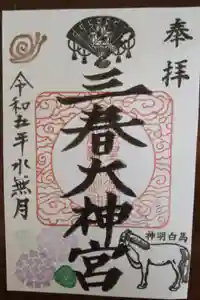 奉拝
三春大神宮
令和五年水無月
神明白馬